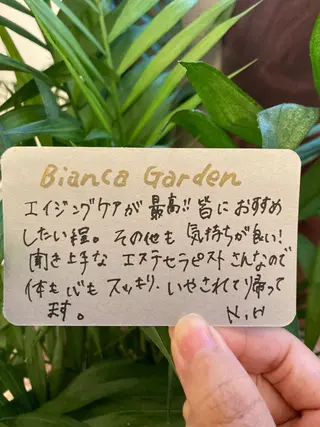 Bianca Garden
エイジングケアが最高!! 皆におすすめ
したい程。その他も気持ちが良い!
聞き上手なエステセラピストさんなので
体も心もスッキリ、いやされて帰って
ます。 N.H